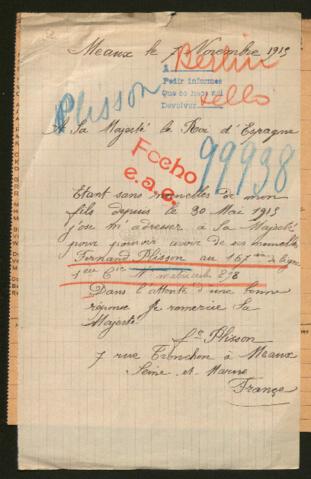 Meaux le 7 Novembre 1915
A Berlin
Pedir informes
Que se haga
Devolver
sello
Plisson
A Sa Majesté le Roi d'Espagne
Fecho
e.a.e.
99938
Etant sans nouvelles de mon
fils depuis le 30 Mai 1915
j'ose m'adresser à Sa Majesté
pour pouvoir avoir de ses nouvelles
Fernand Plisson au 167me de ligne
1ere Cie Matricule
Dans l'attente d'une bonne
réponse Je remercie Sa
Majesté
Plisson
7 rue Tronchon à Meaux
Seine et Marne
France